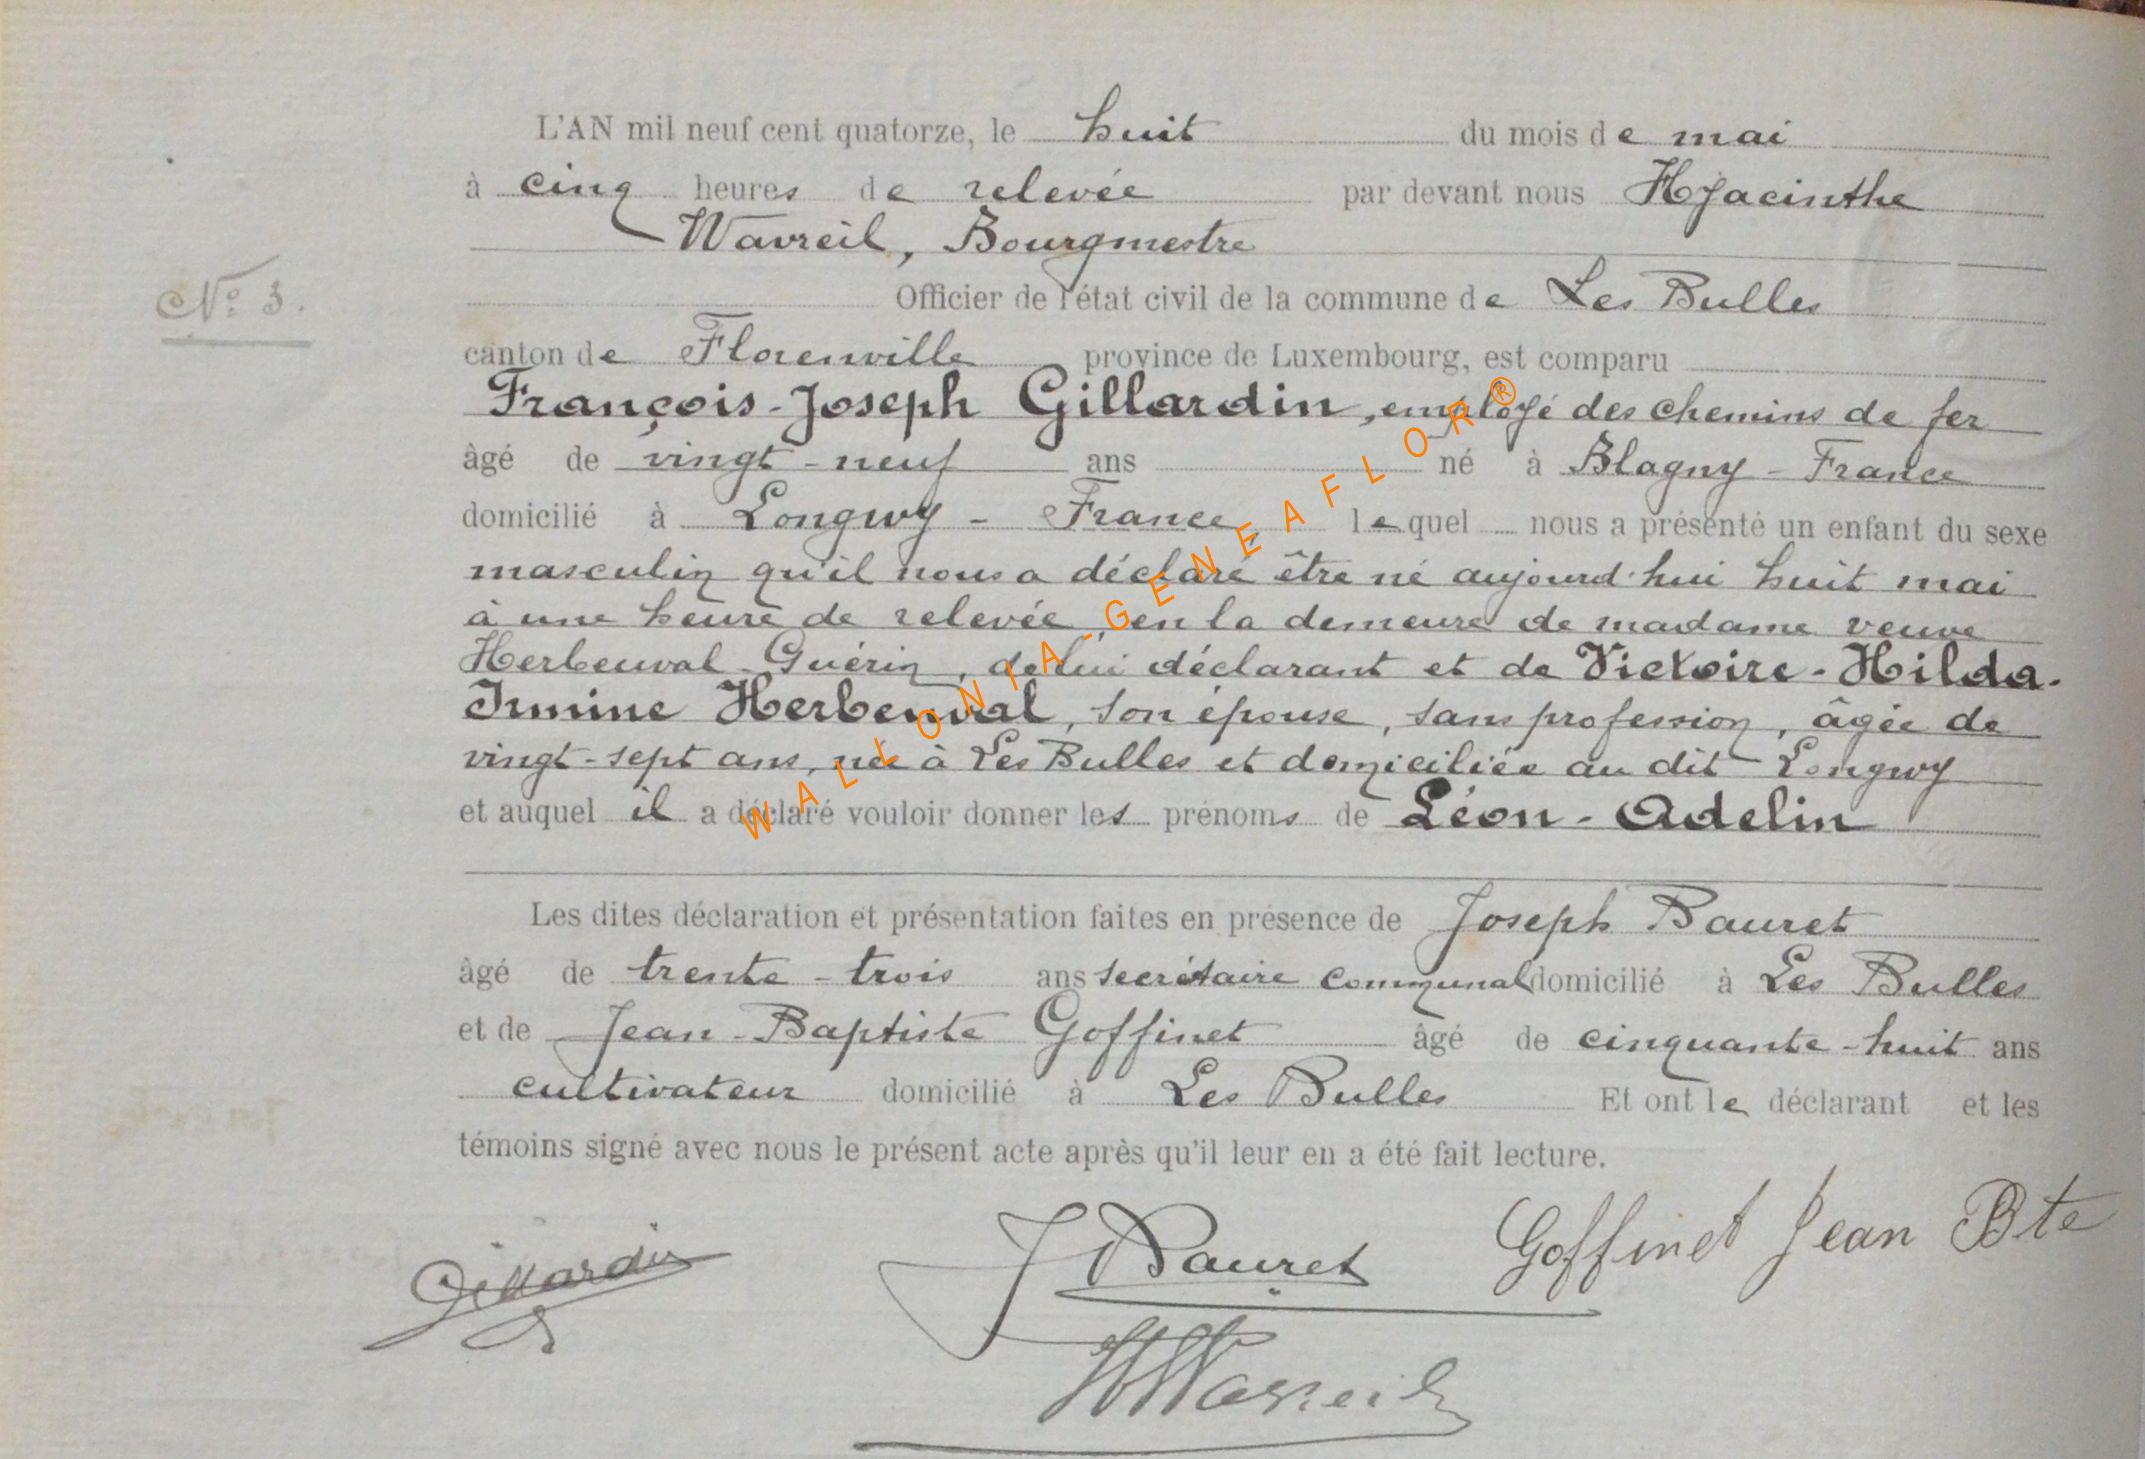 L'AN mil neuf cent quatorze, le huit du mois de mai
à cinq heures de relevée par devant nous Hyacinthe
Wavreil, Bourgmestre
Nº 3.
Officier de l'état civil de la commune de Les Bulles
canton de Florenville province de Luxembourg, est comparu
François-Joseph Gillardin, employé des chemins de fer
âgé de vingt-neuf ans né à Blagny - France
domicilié à Longwy - France, lequel nous a présenté un enfant du sexe
masculin qu'il nous a déclaré être né aujourd'hui huit mai
à une heure de relevée, en la demeure de madame veuve
Herbeuval-Guérin, de lui déclarant et de Victoire-Hilda-
Irmine Herbeuval, son épouse, sans profession, âgée de
vingt-sept ans, née à Les Bulles et domiciliée au dit Longwy
et auquel il a déclaré vouloir donner les prénoms de Léon-Adelin
Les dites déclaration et présentation faites en présence de Joseph Bauret
âgé de trente-trois ans secrétaire communal domicilié à Les Bulles
et de Jean-Baptiste Goffinet âgé de cinquante-huit ans
cultivateur domicilié à Les Bulles Et ont le déclarant et les
témoins signé avec nous le présent acte après qu'il leur en a été fait lecture.
Gillardin J Bauret Goffinet Jean Bte
H Wavreil
WALLONIA-GENEAFLOR®